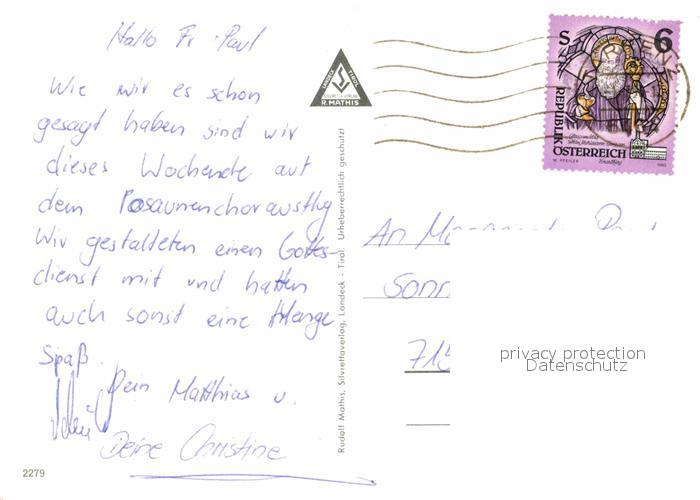 Hallo Fr. Paul
Wie wir es schon
gesagt haben sind wir
dieses Wochende auf
dem Posaunenchorausflug
Wir gestalteten einen Gottes-
dienst mit und hatten
auch sonst eine Menge
Spaß.
Dein Matthias u.
Deine Christine
2279
R. MATHIS
Rudolf Mathis, Silvrettaverlag, Landeck - Tirol. Urheberrechtlich geschützt!
S 6
REPUBLIK
ÖSTERREICH
An
Sonn
715
privacy protection
Datenschutz